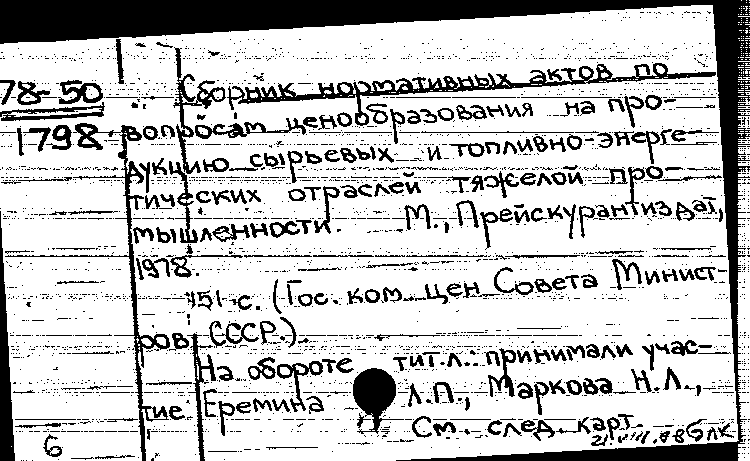 78-50
1798
Сборник нормативных актов по
вопросам ценообразования на про-
дукцию сырьевых и топливно-энерге-
тических отраслей тяжелой про-
мышленности. М., Прейскурантиздат,
1978.
151 с. (Гос. ком. цен Совета Минист-
ров СССР.)
На обороте тит.л.: принимали учас-
тие Еремина Л.П., Маркова Н.Л.,
См. след. карт.
6